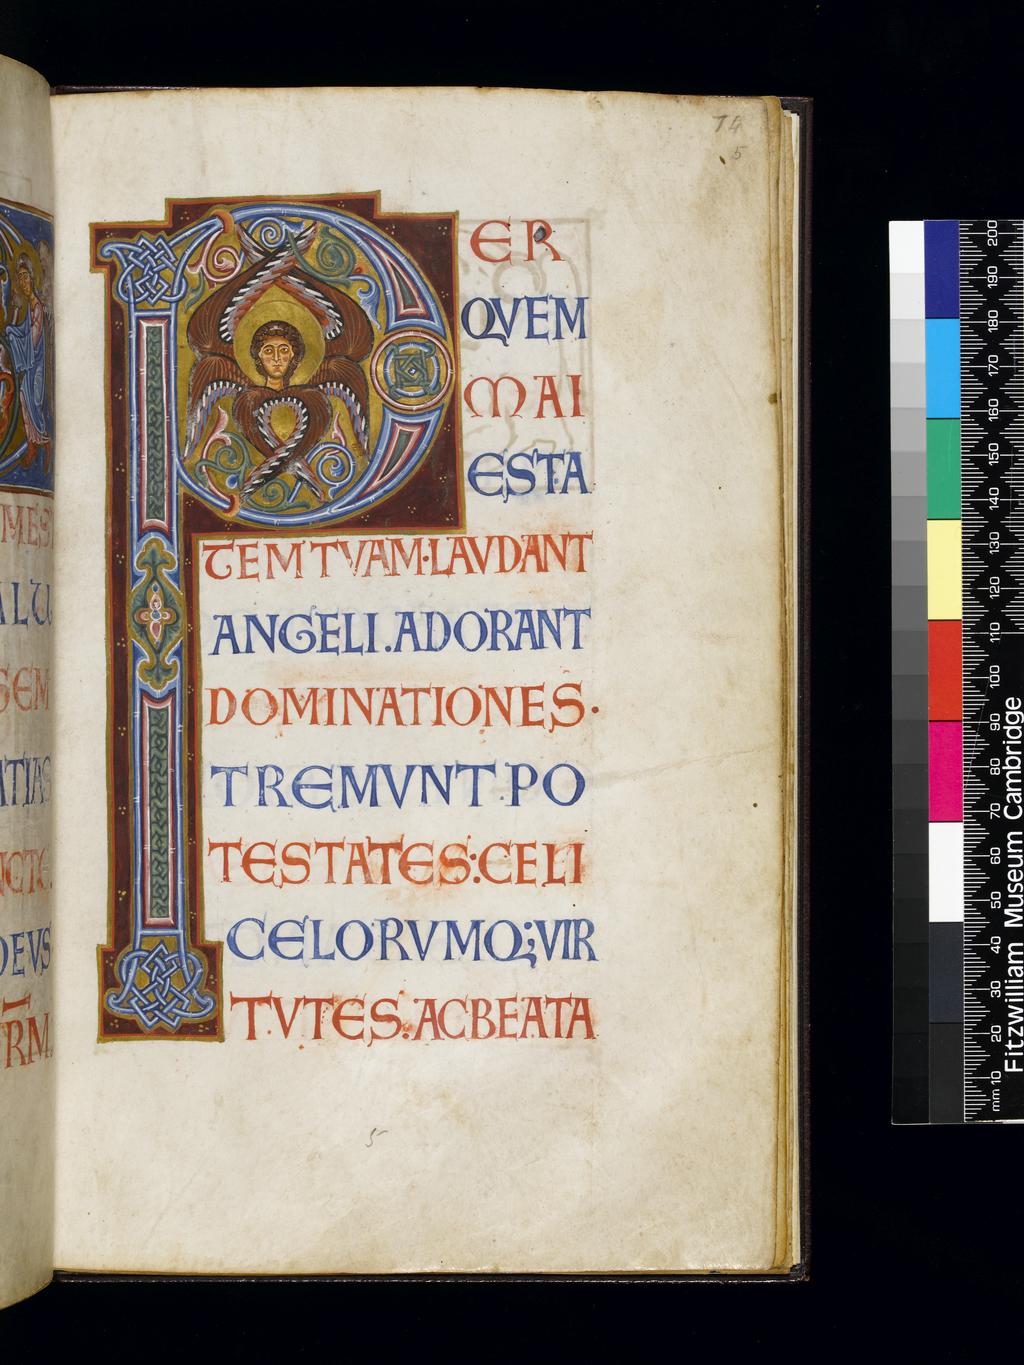 74
5
PER
QVEM
MAI
ESTA
TEM TVAM·LAVDANT
ANGELI.ADORANT
DOMINATIONES·
TREMVNT.PO
TESTATES:CELI
CELORVMQ;VIR
TVTES.ACBEATA
5
MES
ALU
SEM
ATIAS
DEVS
RM
mm 10 20 30 40 50 60 70 80 90 100 110 120 130 140 150 160 170 180 190 200
Fitzwilliam Museum Cambridge